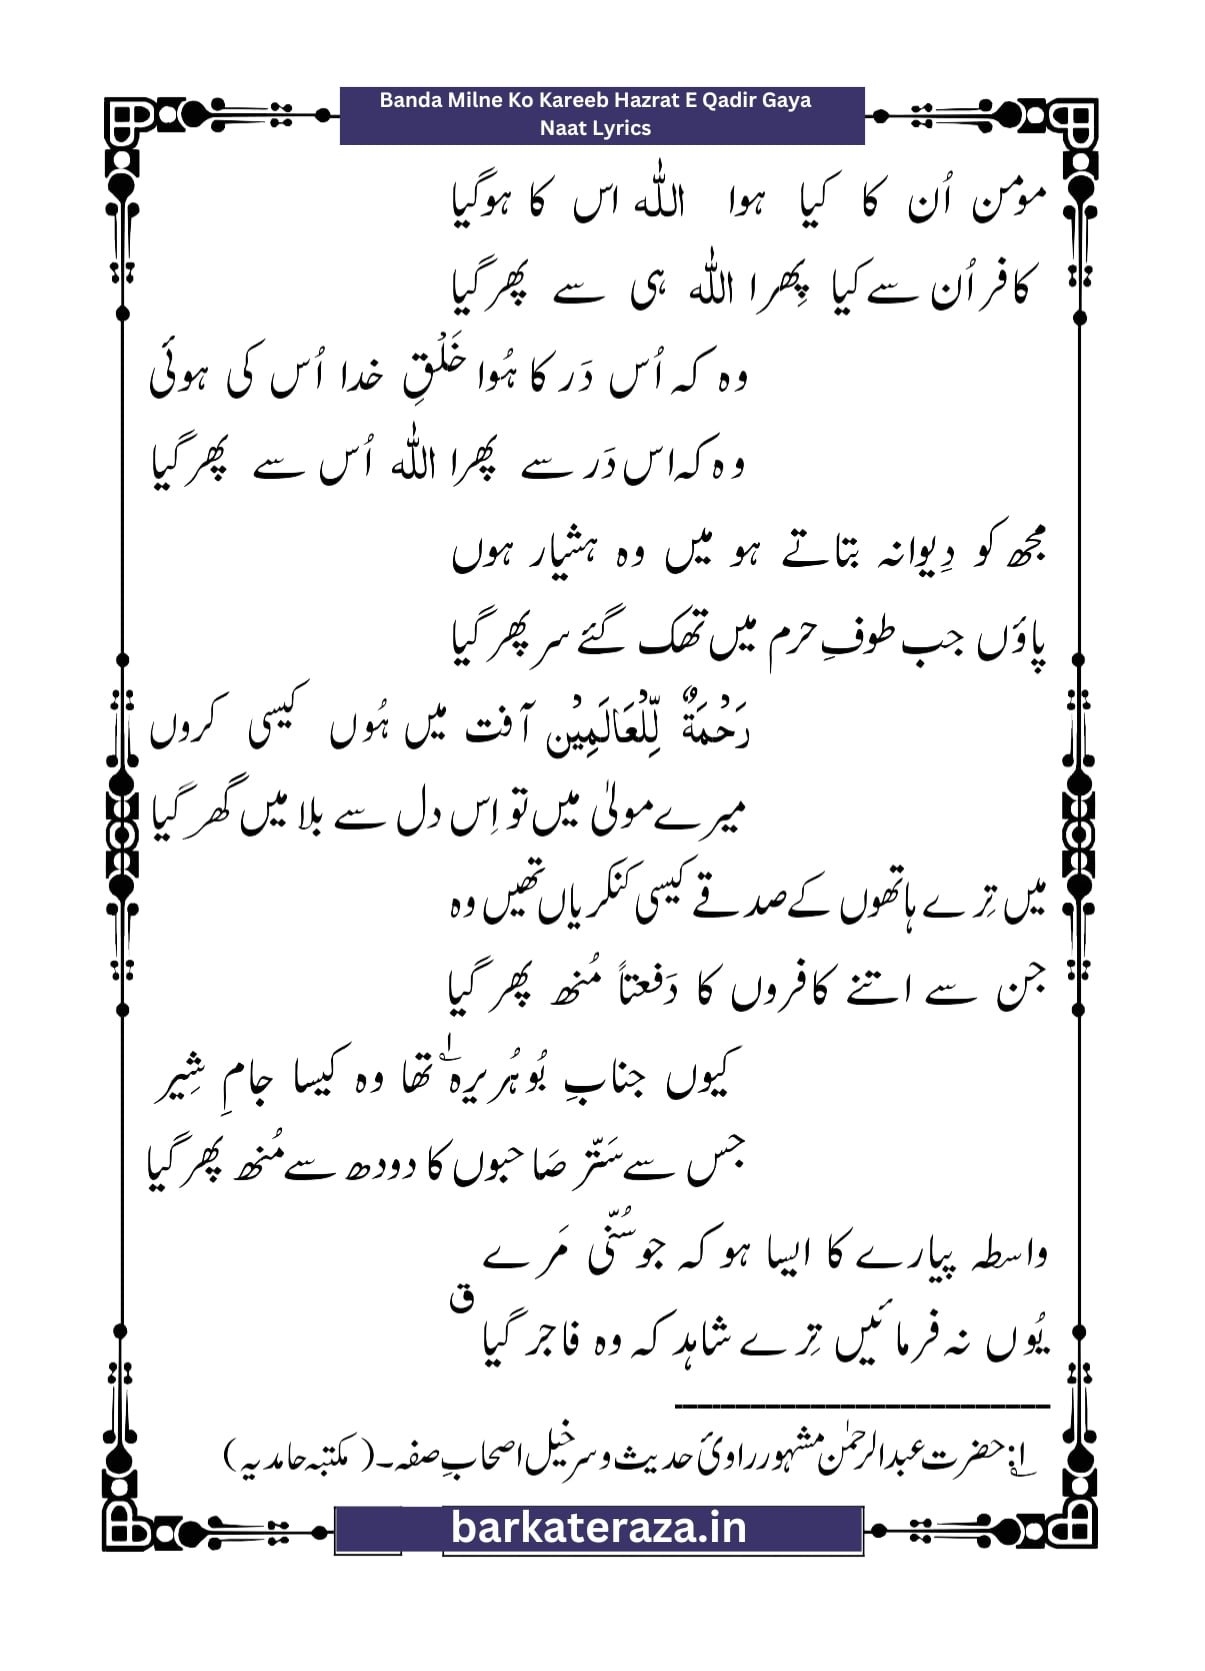 Banda Milne Ko Kareeb Hazrat E Qadir Gaya
Naat Lyrics
مومن اُن کا کیا ہوا اللہ اس کا ہوگیا
کافر اُن سے کیا پِھرا اللہ ہی سے پھر گیا
وہ کہ اُس دَر کا ہُوا خَلْقِ خدا اُس کی ہوئی
وہ کہ اس دَر سے پھرا اللہ اُس سے پھر گیا
مجھ کو دِیوانہ بتاتے ہو میں وہ ہشیار ہوں
پاؤں جب طوفِ حرم میں تھک گئے سر پھر گیا
رَحْمَةٌ لِّلْعَالَمِیْن آفت میں ہُوں کیسی کروں
میرے مولیٰ میں تو اِس دل سے بلا میں گھر گیا
میں تِرے ہاتھوں کے صدقے کیسی کنکریاں تھیں وہ
جن سے اتنے کافروں کا دَفعتاً مُنھ پھر گیا
کیوں جنابِ بُوہُریرہ ؎۱ تھا وہ کیسا جامِ شِیر
جس سے سَتّر صَاحبوں کا دودھ سے مُنھ پھر گیا
واسطہ پیارے کا ایسا ہو کہ جو سُنّی مَرے
ق
یُوں نہ فرمائیں تِرے شاہد کہ وہ فاجر گیا
؎۱: حضرت عبدالرحمٰن مشہور راویٔ حدیث و سرخیل اصحابِ صفہ۔ (مکتبہ حامدیہ)
barkateraza.in